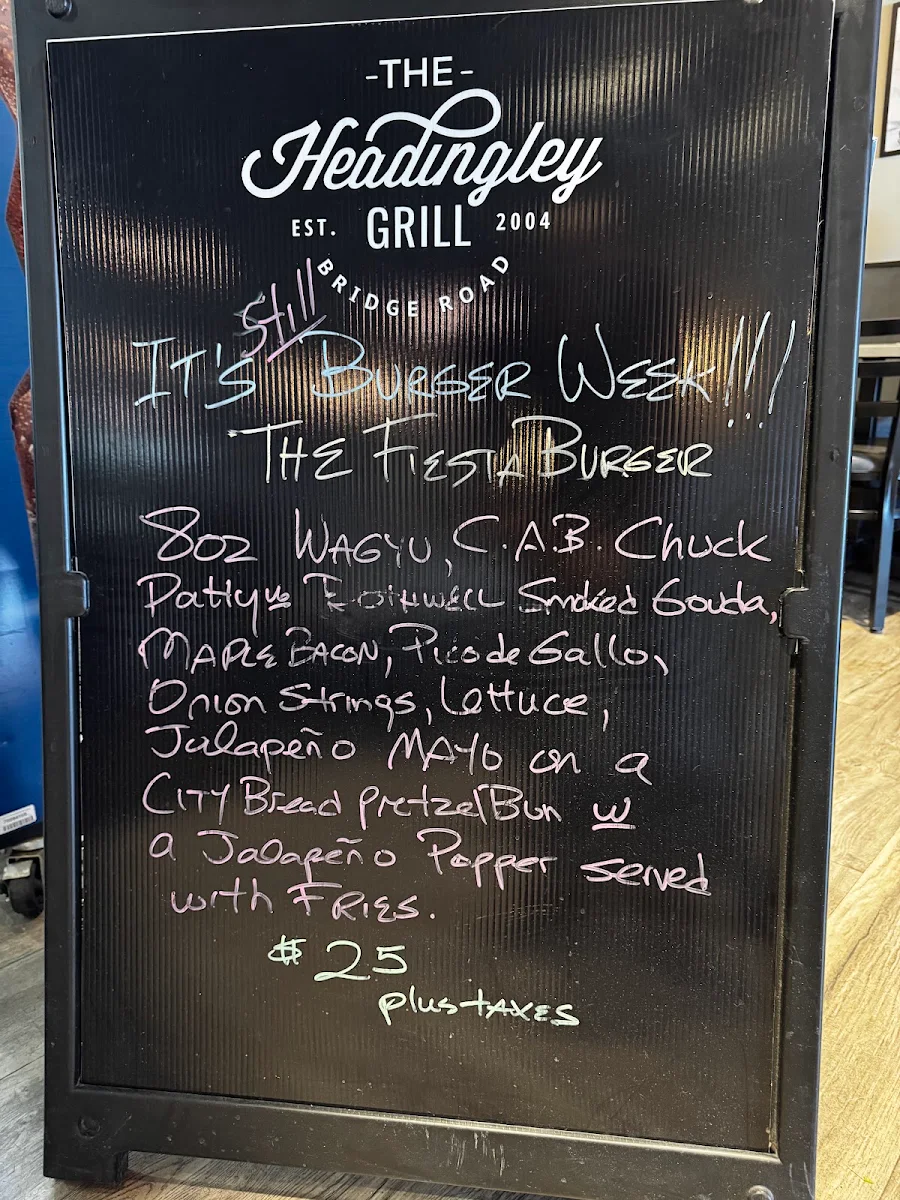 -THE-
Headingley
EST. GRILL 2004
BRIDGE ROAD
Still
IT'S BURGER WEEK!!!
THE FIESTA BURGER
8oz WAGYU, C.A.B. Chuck
Patty w BOTHWELL Smoked Gouda,
MAPLE BACON, Pico de Gallo,
Onion Strings, Lettuce,
Jalapeño MAYO on a
CITY Bread pretzel Bun w
a Jalapeño Popper served
with FRIES.
$25
plus TAXES